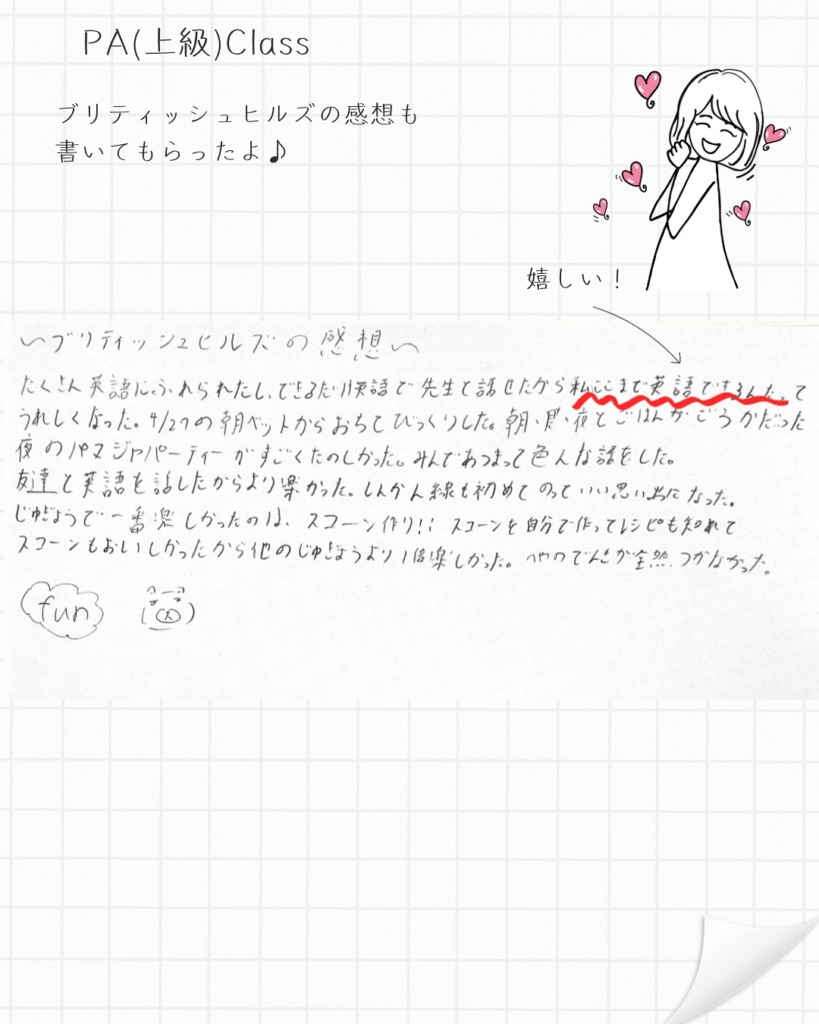 PA(上級)Class
ブリティッシュヒルズの感想も
書いてもらったよ♪
嬉しい！
〜ブリティッシュヒルズの感想〜
たくさん英語にふれられたし、できるだけ英語で先生と話せたから私ここまで英語できるんだって
うれしくなった。4/27の朝ベットからおちてびっくりした。朝、昼、夜とごはんがごうかだった
夜のパジャパーティーがすごくたのしかった。みんであつまって色んな話をした。
友達と英語を話したからより楽かった。しんかん線も初めてのっていい思い出になった。
じゅぎょうで一番楽しかったのは、スコーン作り!! スコーンを自分で作ってレシピも知れて
スコーンもおいしかったから他のじゅぎょうより1倍楽しかった。へやのでんきが全然つかなかった。
fun